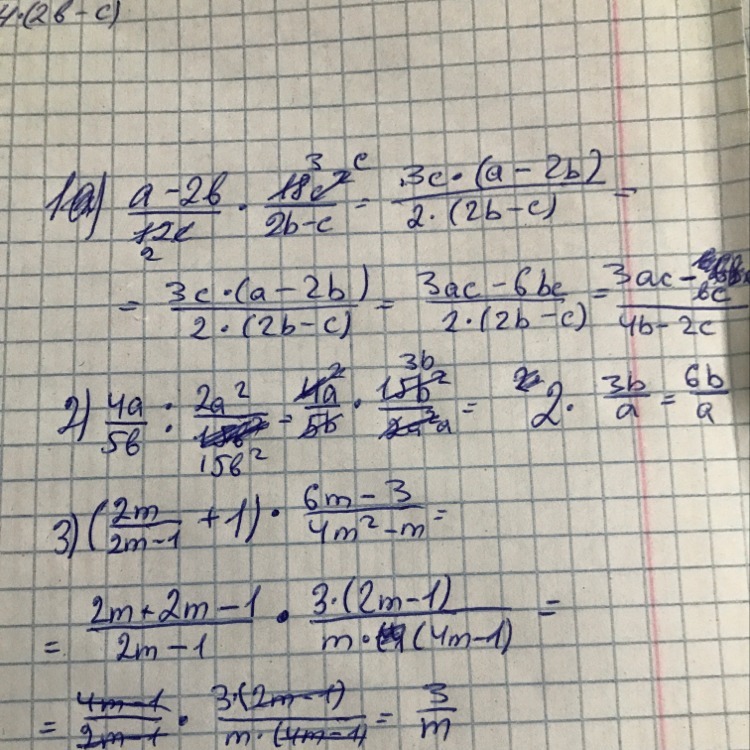 4·(2b-c)
1a) (a-2b)/(12c) · (18c²)/(2b-c) = (3c·(a-2b))/(2·(2b-c)) =
= (3c·(a-2b))/(2·(2b-c)) = (3ac-6bc)/(2·(2b-c)) = (3ac-6bc)/(4b-2c)
2) 4a/5b : 2a²/15b² = 4a/5b · 15b²/2a² = 2· 3b/a = 6b/a
3) (2m/(2m-1) + 1) · (6m-3)/(4m²-m) =
= (2m+2m-1)/(2m-1) · (3·(2m-1))/(m·(4m-1)) =
= (4m-1)/(2m-1) · (3·(2m-1))/(m·(4m-1)) = 3/m